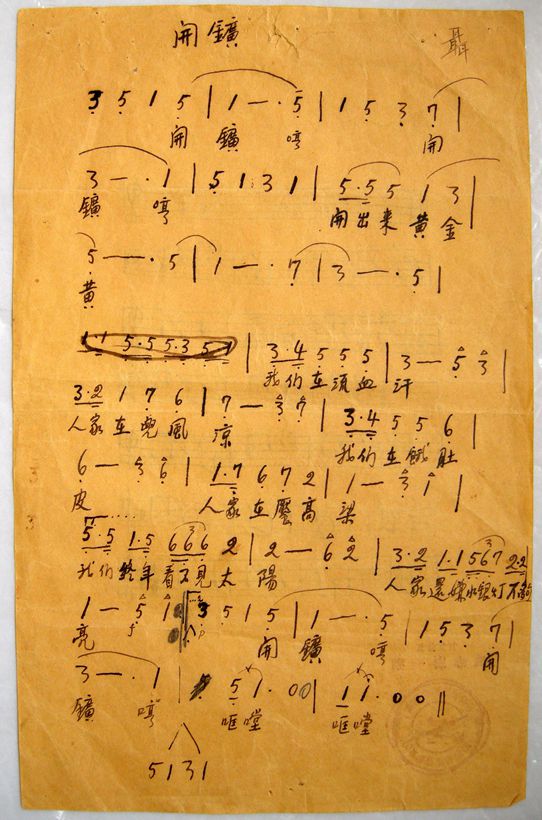 開鑛 聶
3 5 1 5 | 1 — · 5 | 1 5 3 7 |
開 鑛 哼 開
3 — · 1 | 5 1 3 1 | 5·5 5 1 3 |
鑛 哼 開出來黃金
5 — · 5 | 1 — · 7 | 3 — · 5 |
黃
1 1 5·5 5·3 5 1 | 3·4 5 5 5 | 3 — 5 3 |
我們在流血 汗
3·2 1 7 6 | 7 — 3 7 | 3·4 5 5 6 |
人家在兜風 涼 我們在餓肚
6 — 3 6 | 1·7 6 7 2 | 1 — 3 1 |
皮 人家在壓高 梁
5·5 1·5 666 2 | 2 — 6 2 | 3·2 1·1 567 2·2
我們終年看不見太 陽 人家還嫌水銀灯不夠
1 — 5 1 3 5 1 5 | 1 — · 5 | 1 5 3 7 |
亮 f p 開 鑛 哼 開
3 — · 1 | 5 1 · 0 0 | 1 1 · 0 0 ‖
鑛 哼 哐嘡 哐嘡
5 1 3 1